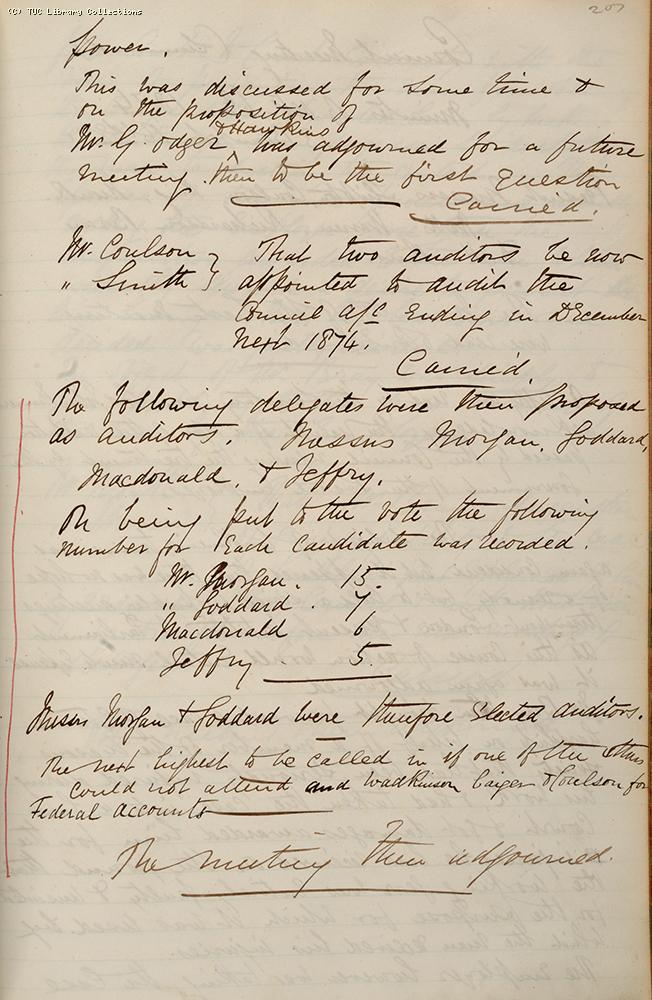 (C) TUC Library Collections
207
power.
This was discussed for some time &
on the proposition of
Mr. G. Odger & Hawkins, was adjourned for a future
meeting. then to be the first Question
Carried.
Mr. Coulson } That two auditors be now
" Smith } appointed to audit the
Council a/c Ending in December
next 1874.
Carried
The following delegates were then proposed
as auditors. Messrs Morgan, Goddard,
Macdonald, & Jeffry.
On being put to the vote the following
number for Each Candidate was recorded.
Mr. Morgan. 15.
" Goddard. 7
Macdonald 6
Jeffry 5.
Messrs Morgan & Goddard were therefore Elected Auditors.
The next highest to be called in if one of the others
could not attend and Wadkinson Caiger & Coulson for
Federal Accounts
The meeting then adjourned.